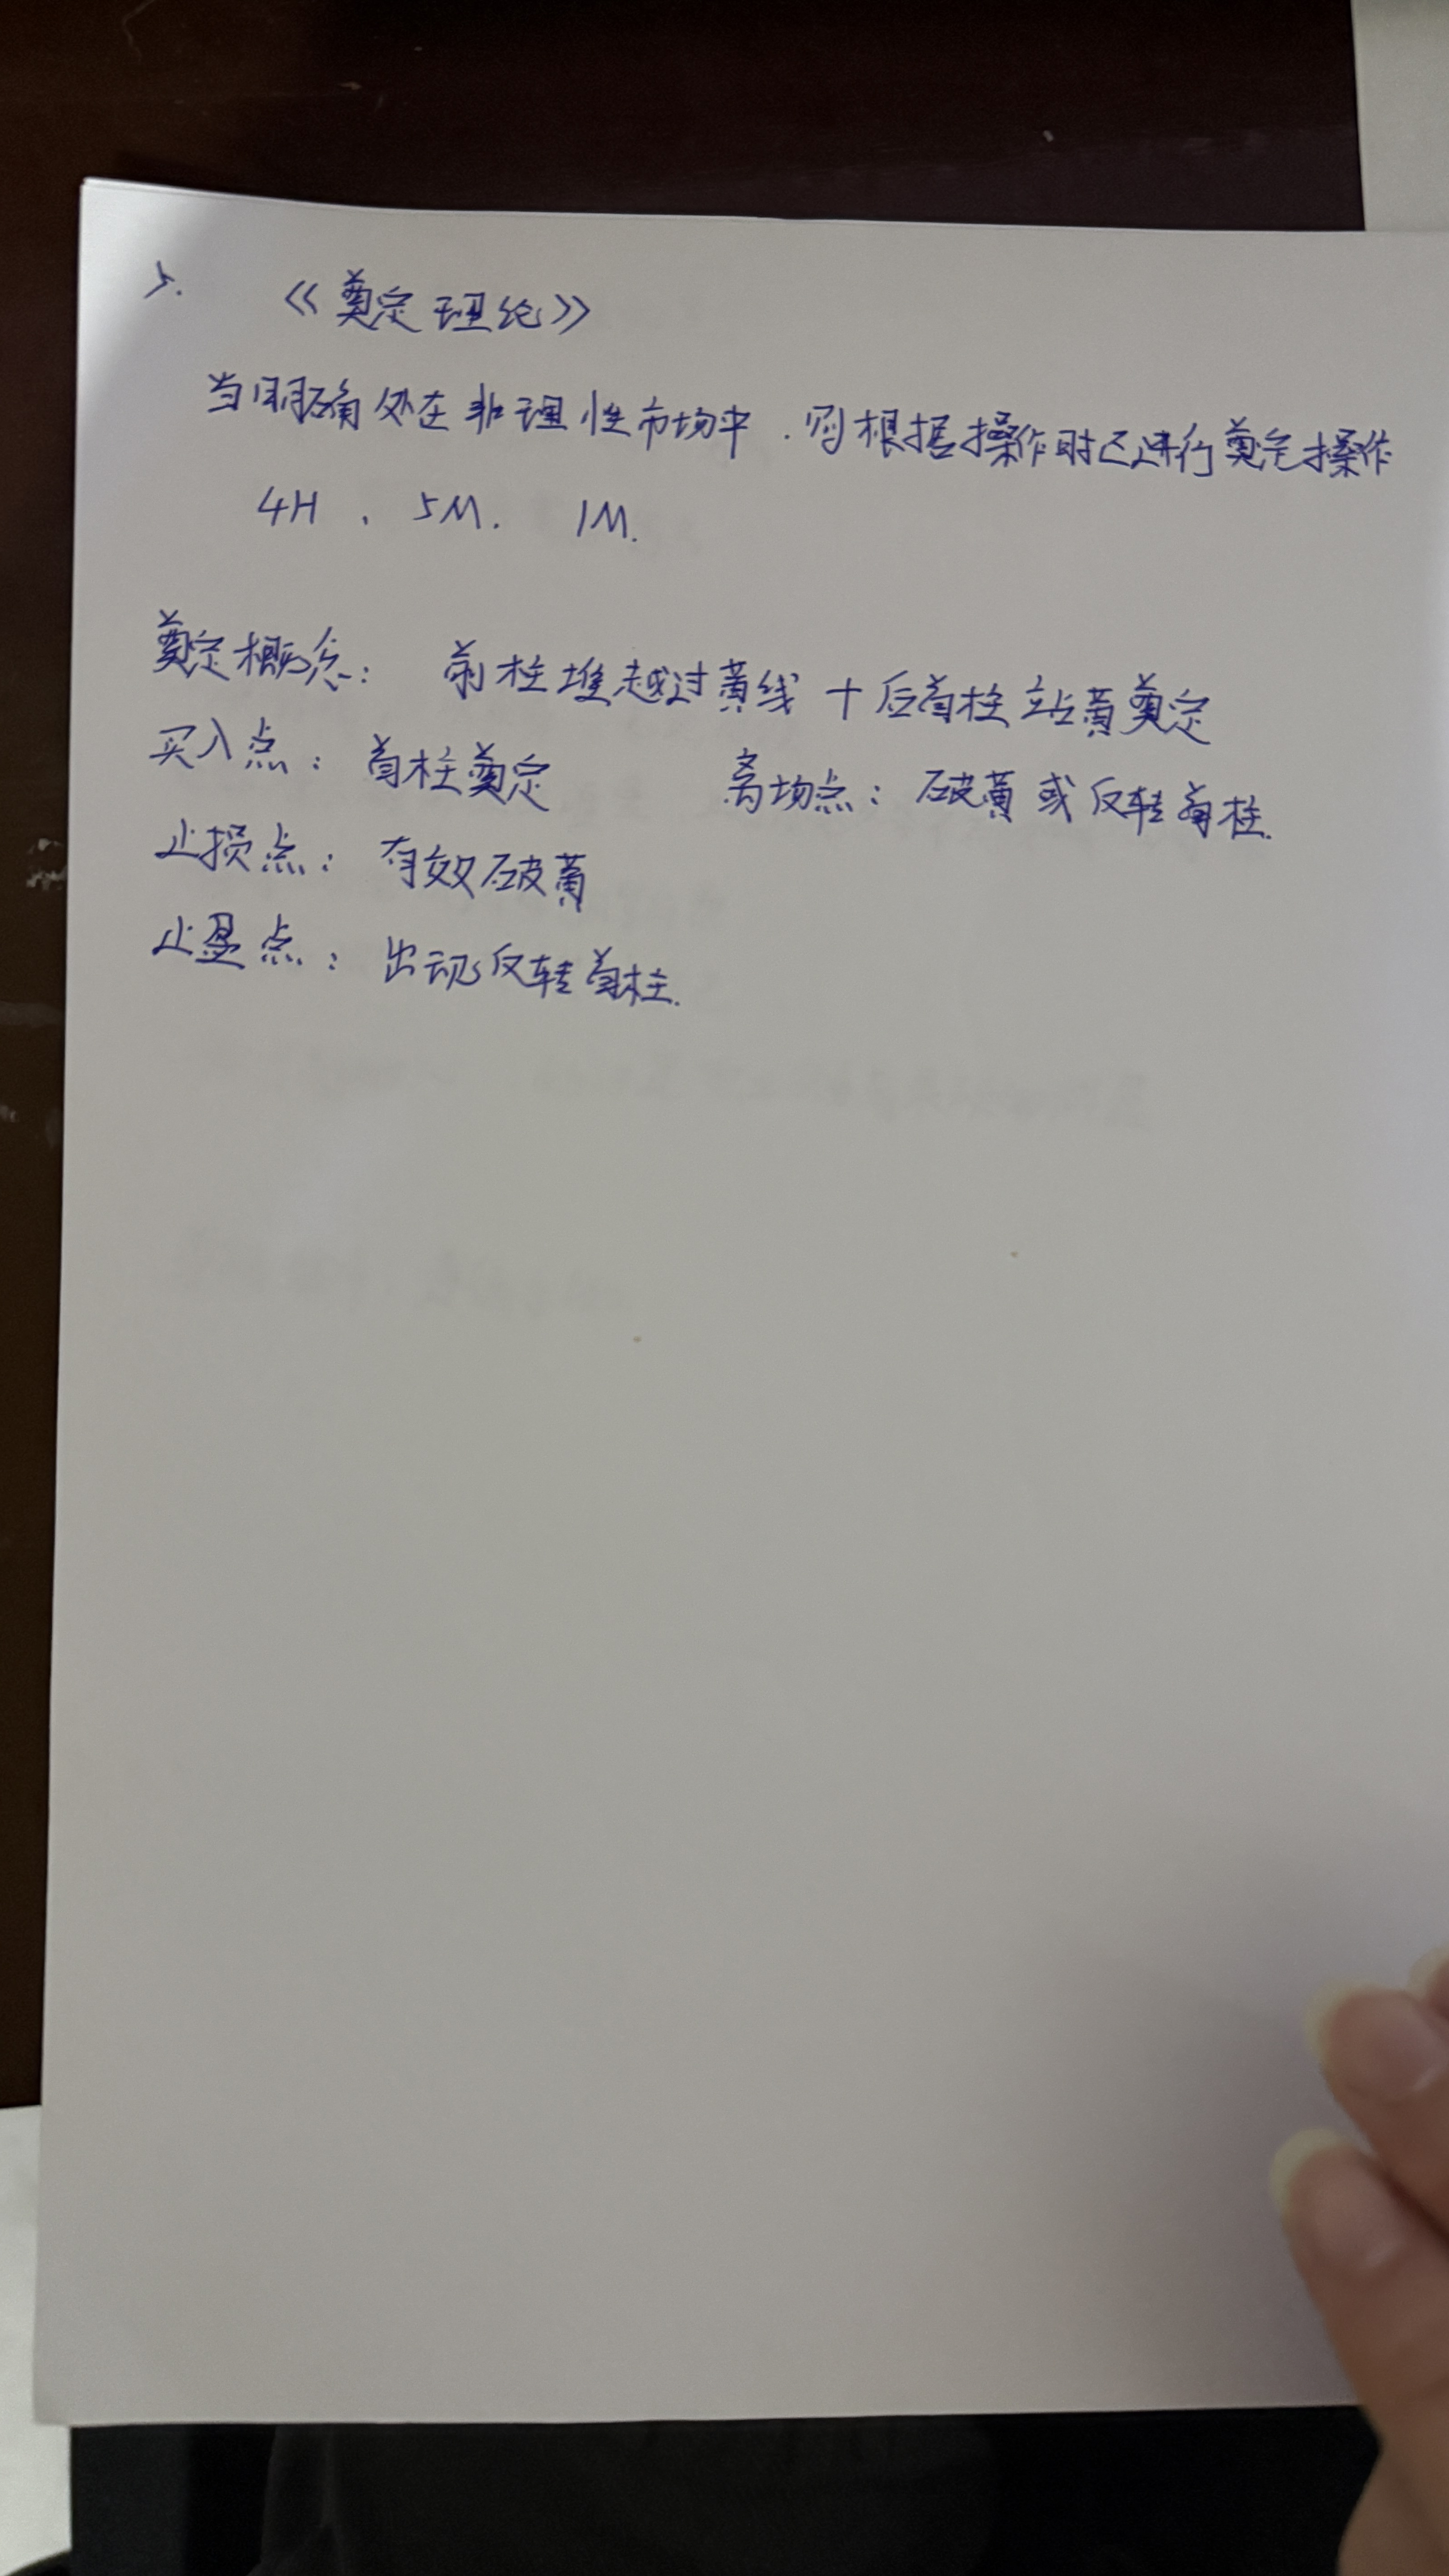 5. 《奠定理论》
当明确处在非理性市场中.则根据操作时区进行奠定操作
4H 、 5M. 1M.
奠定概念: 前柱堆越过黄线 + 后首柱站黄奠定
买入点: 首柱奠定 离场点: 破黄或反转首柱.
止损点: 有效破黄
止盈点: 出现反转首柱.